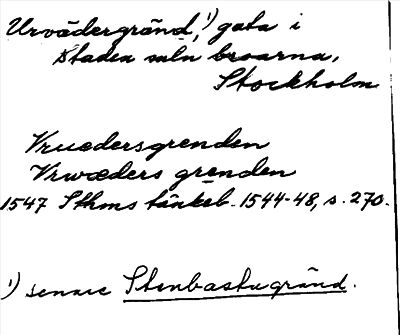 Urvädergränd,¹) gata i
staden mln broarna,
Stockholm
Vruædersgrenden
Vrwæders grenden
1547 Sthms tänkeb. 1544-48, s. 270.
¹) senare Stenbastugränd.